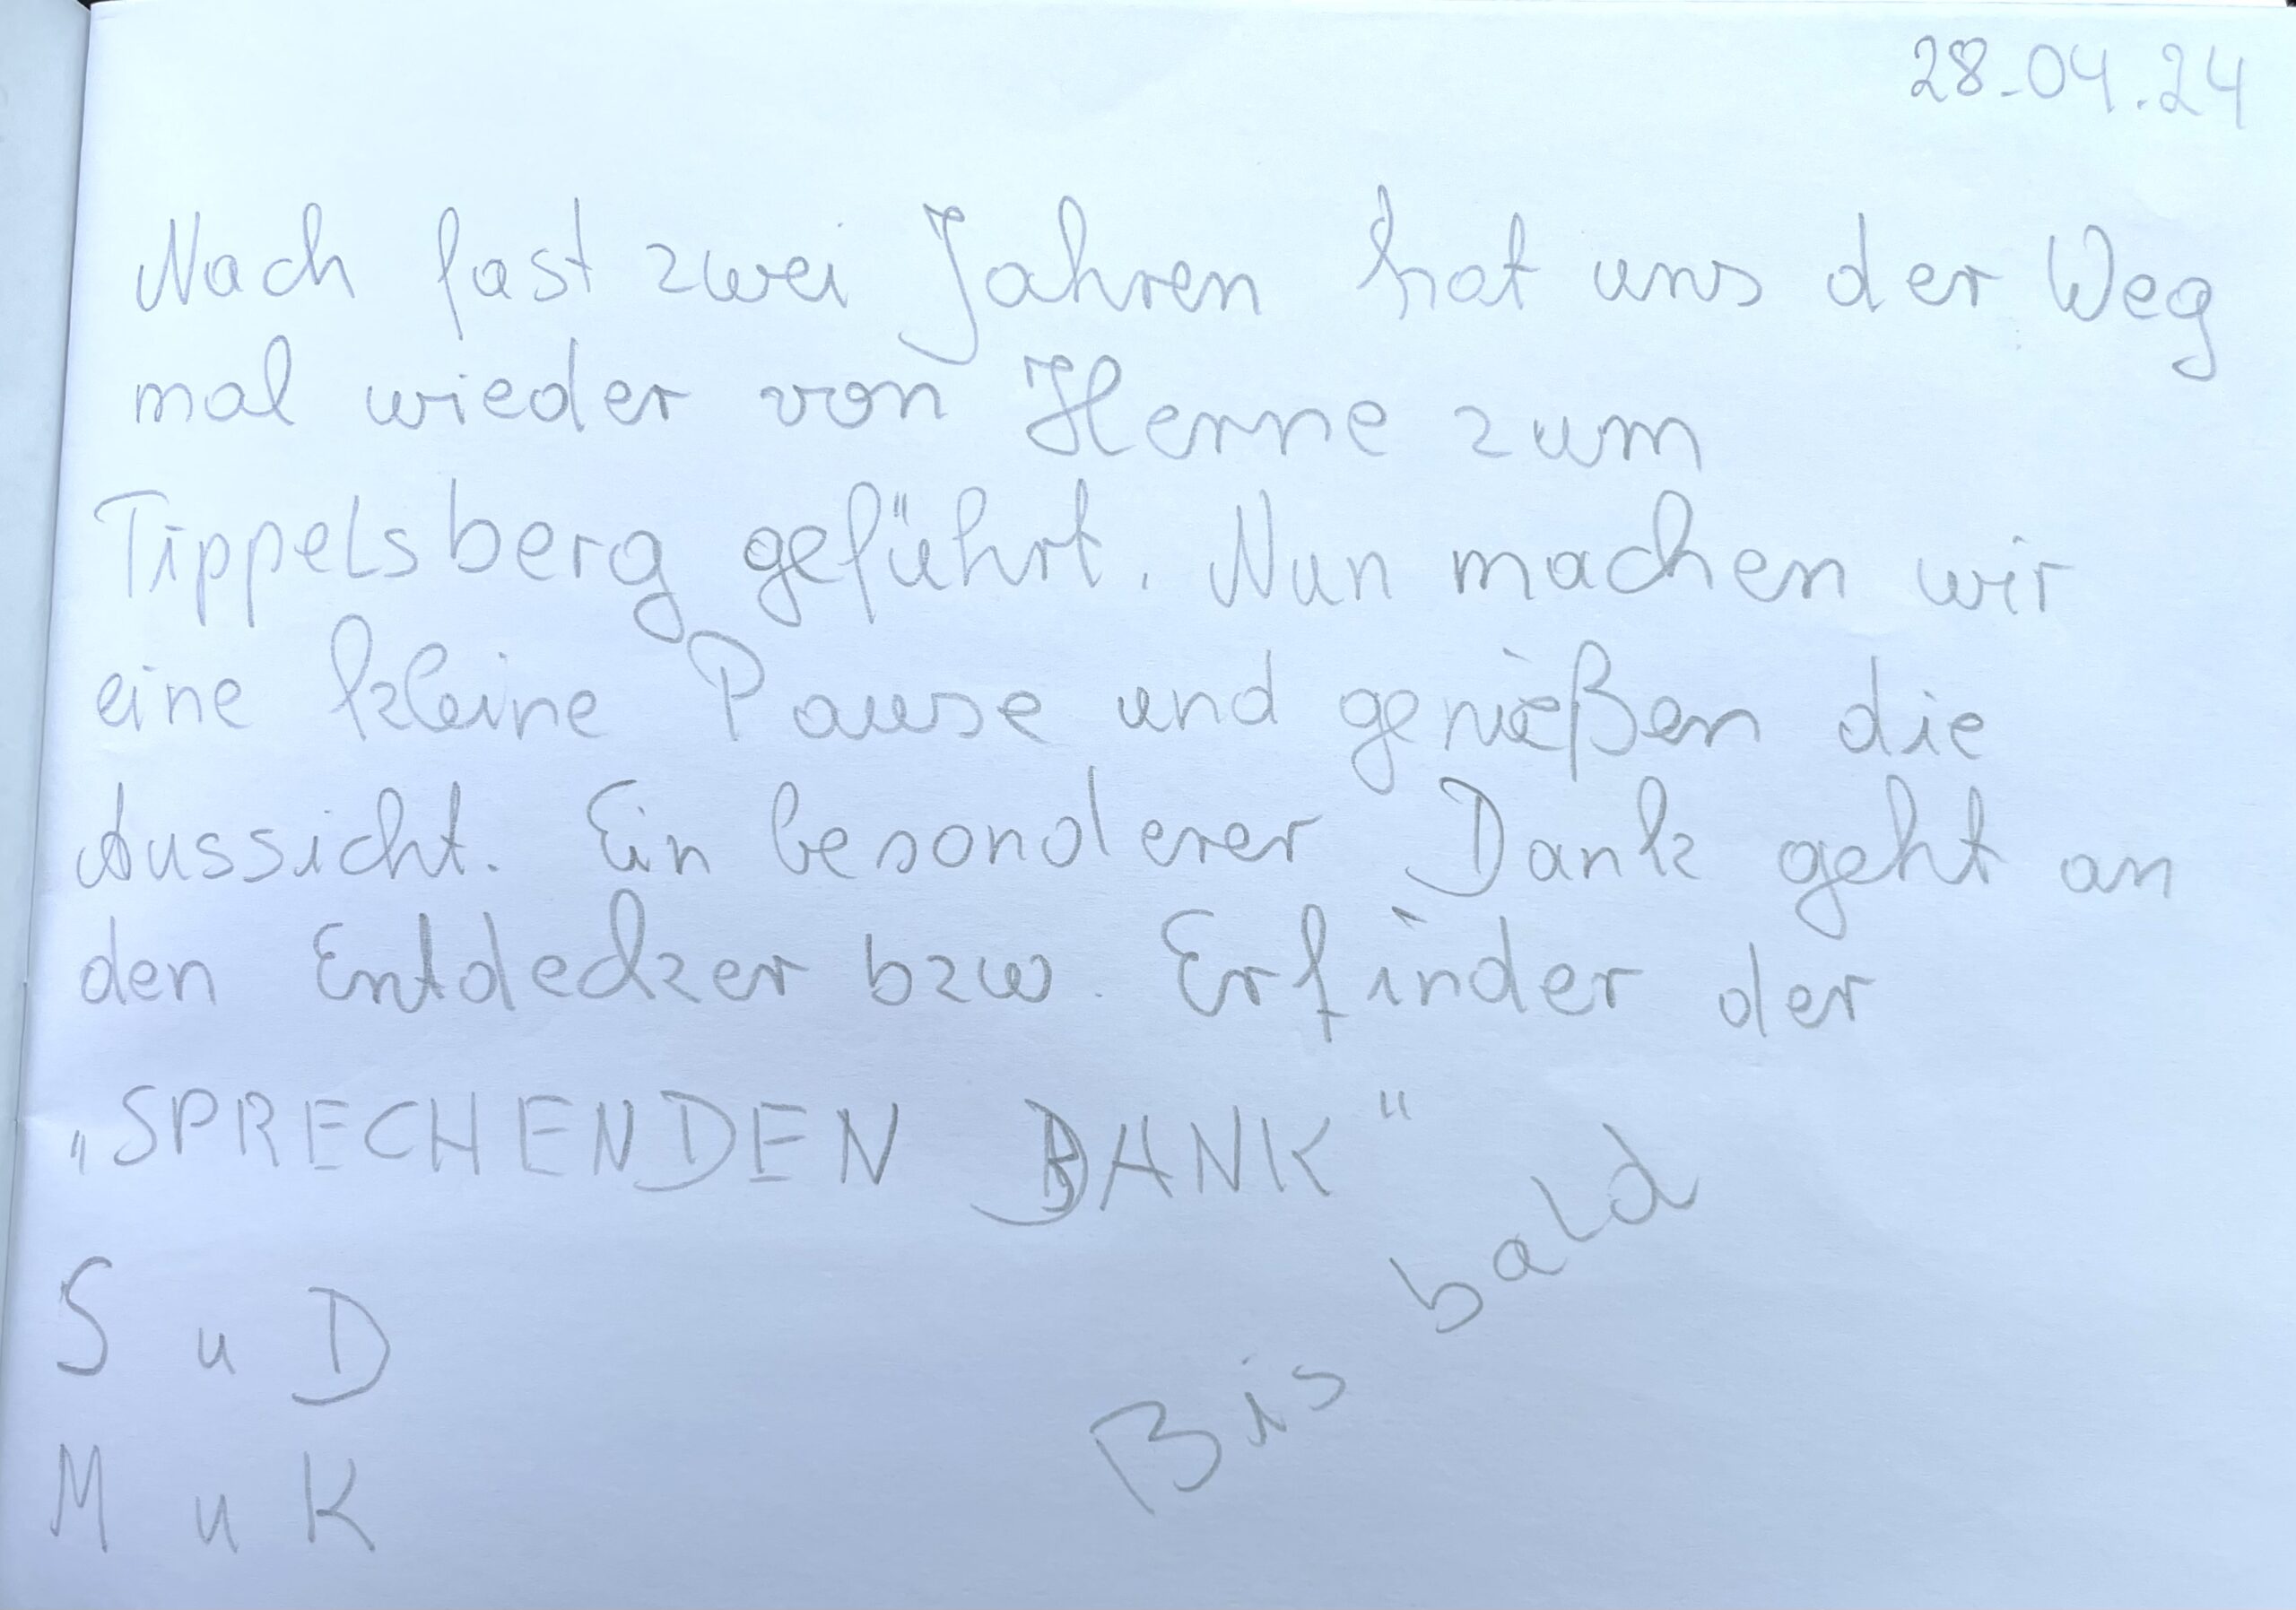 28.04.24
Nach fast zwei Jahren hat uns der Weg
mal wieder von Herne zum
Tippelsberg geführt. Nun machen wir
eine kleine Pause und genießen die
Aussicht. Ein besonderer Dank geht an
den Entdecker bzw. Erfinder der
„SPRECHENDEN BANK“
Bis bald
S u D
M u K